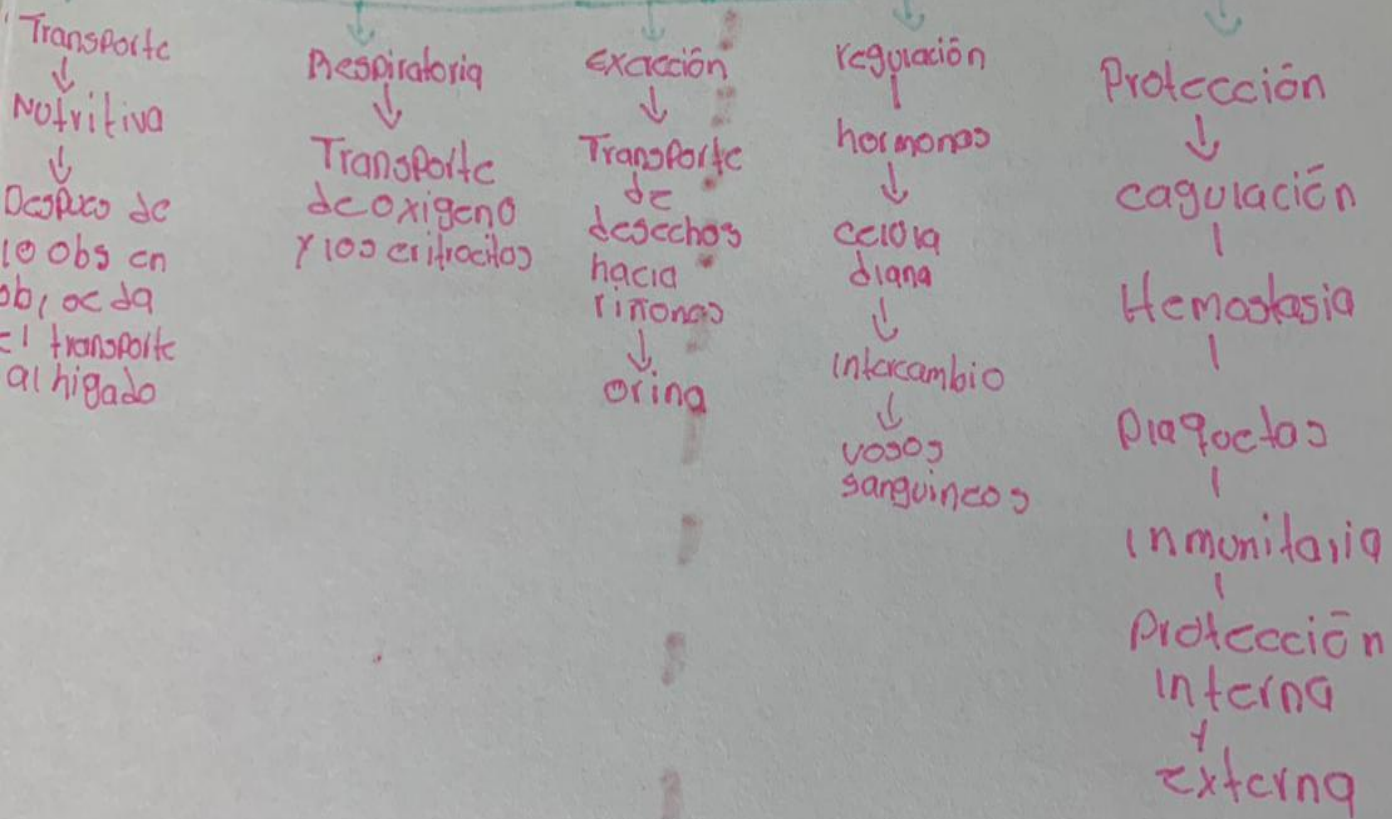 Transporte
Nutritiva
Despues de
la abs en
ob, se da
el transporte
al higado
Respiratoria
Transporte
de oxigeno
y los eritrocitos
Exacción
Transporte
de
desechos
hacia
riñones
orina
regulación
hormonas
celula
diana
intercambio
vasos
sanguineos
Protección
cagulación
Hemostasia
plaquetas
inmunitaria
protección
interna
y
externa